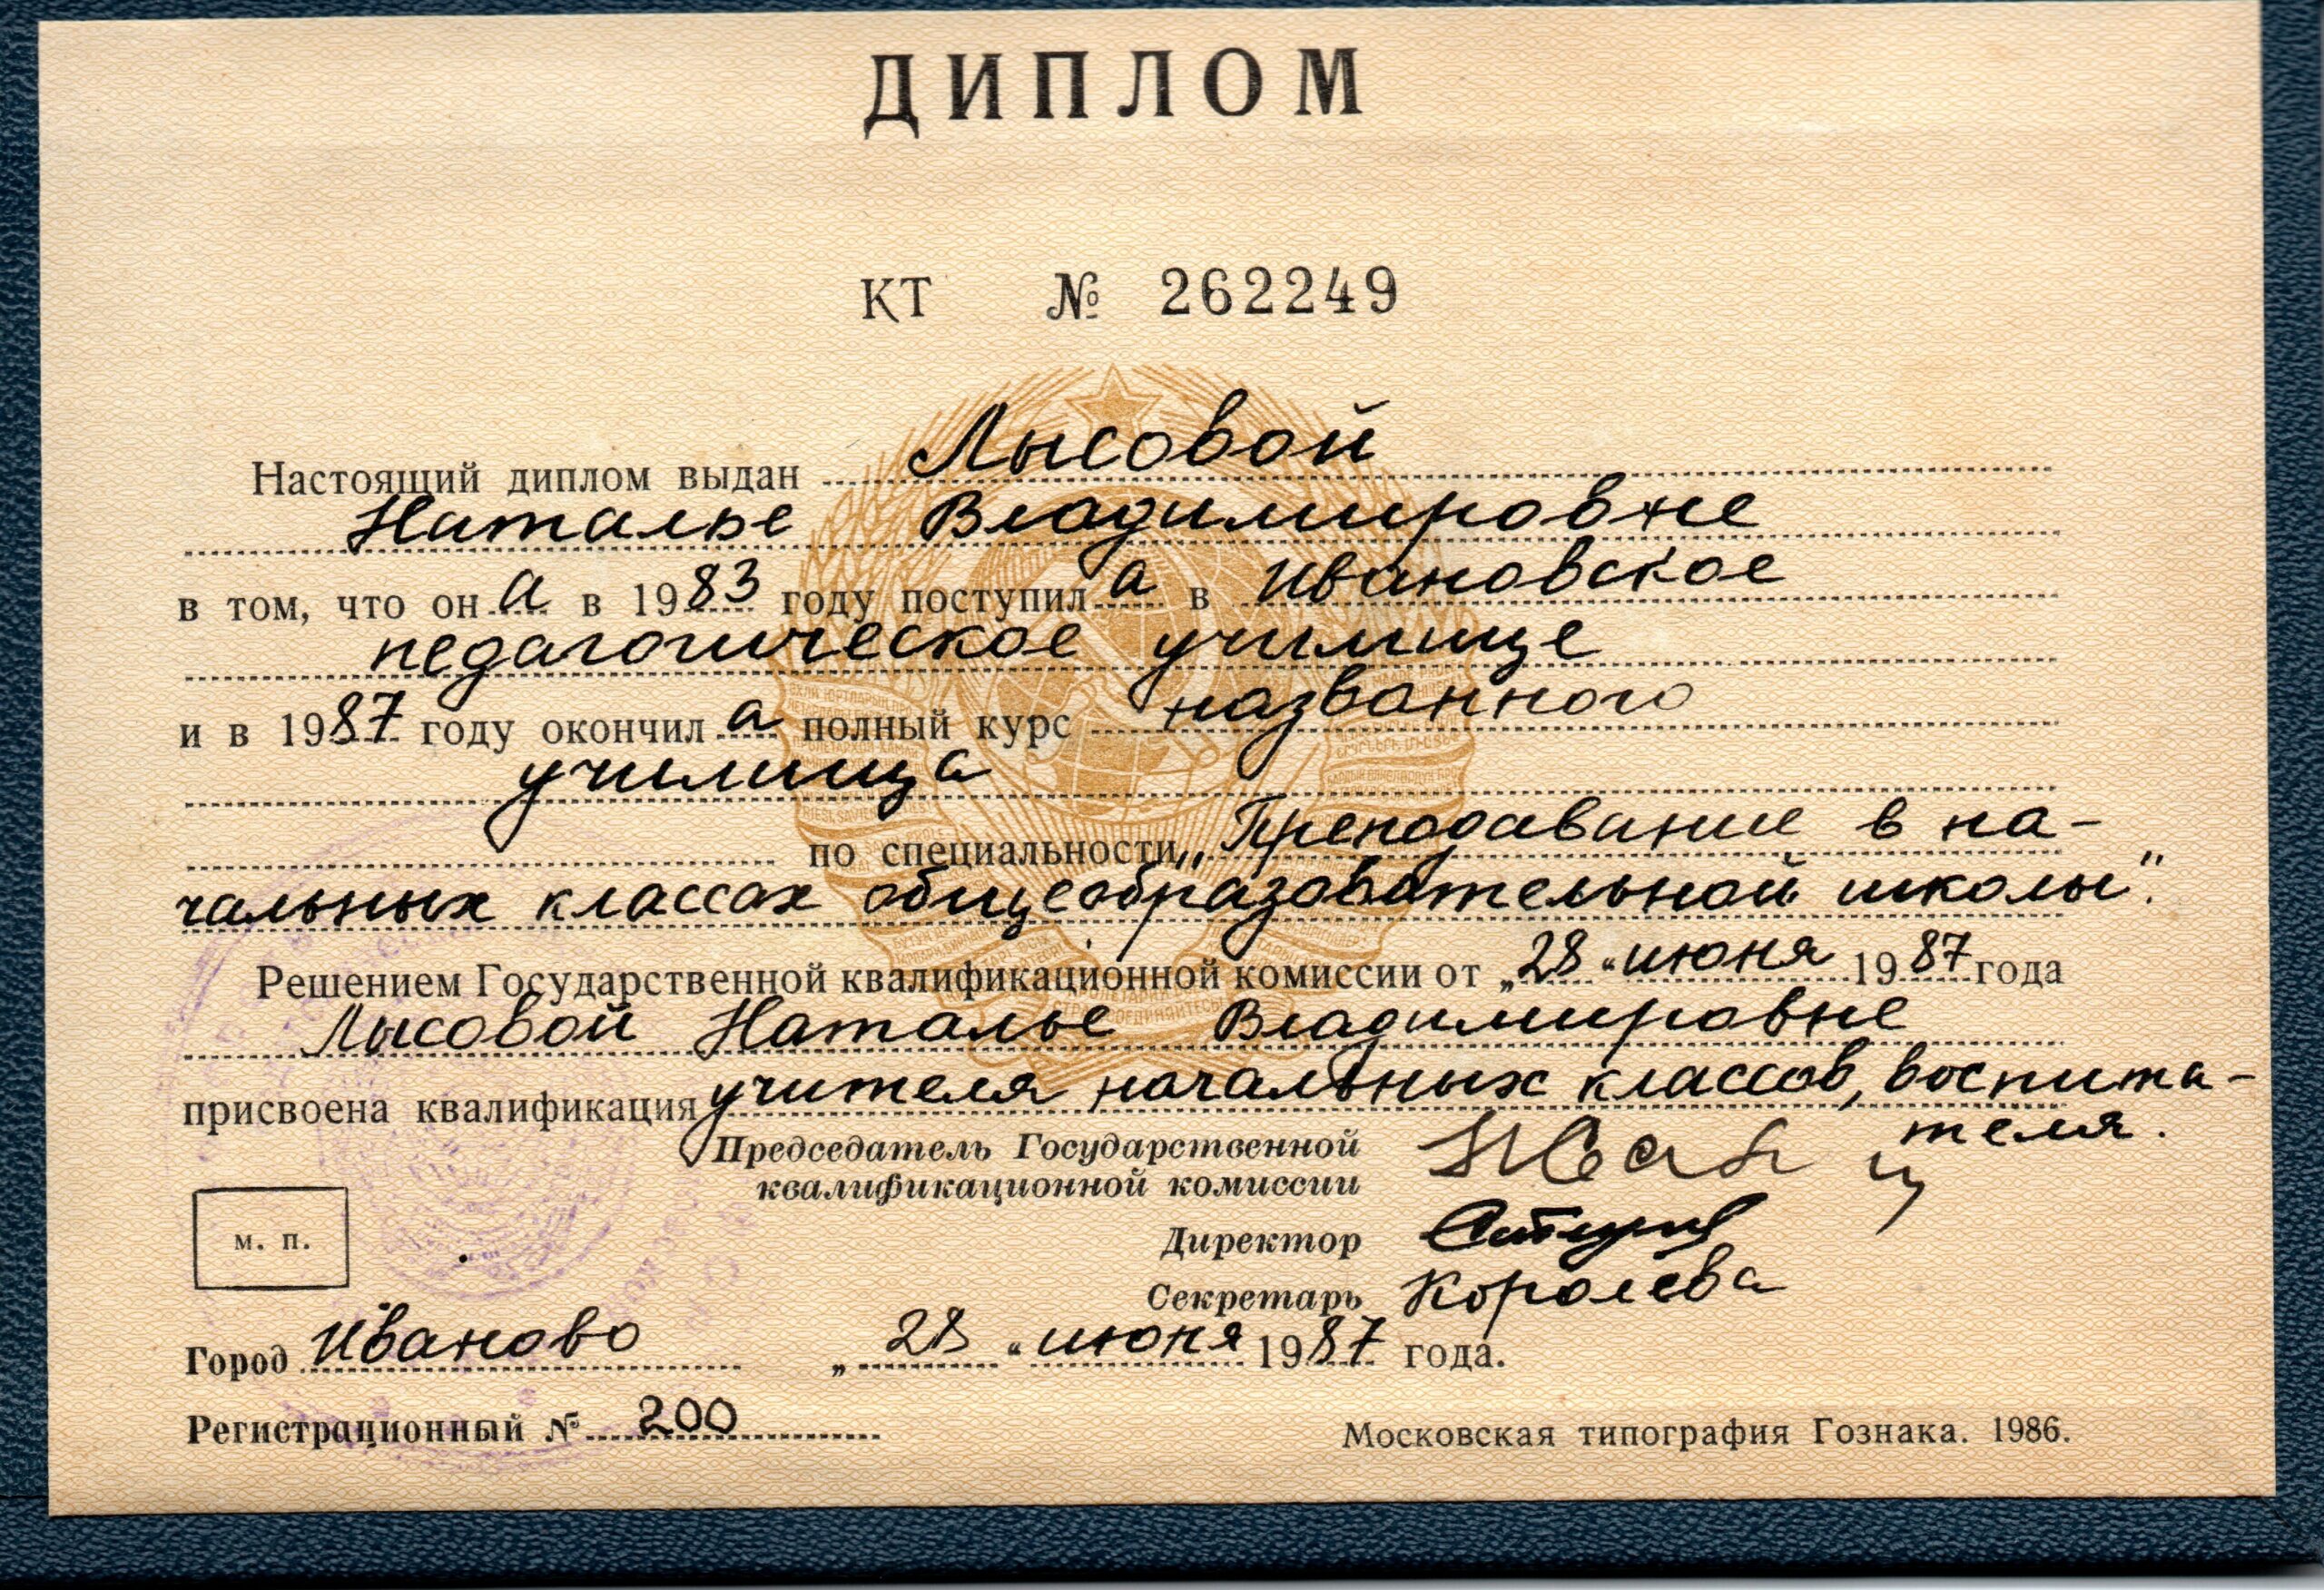 ДИПЛОМ
КТ № 262249
Настоящий диплом выдан Лысовой
Наталье Владимировне
в том, что она в 1983 году поступила в Ивановское
педагогическое училище
и в 1987 году окончила полный курс названного
училища
по специальности „Преподавание в на-
чальных классах общеобразовательной школы".
Решением Государственной квалификационной комиссии от „28" июня 1987 года
Лысовой Наталье Владимировне
присвоена квалификация учителя начальных классов, воспита-
теля.
Председатель Государственной
квалификационной комиссии
м. п.
Директор
Секретарь Королева
Город Иваново „28" июня 1987 года.
Регистрационный № 200
Московская типография Гознака. 1986.